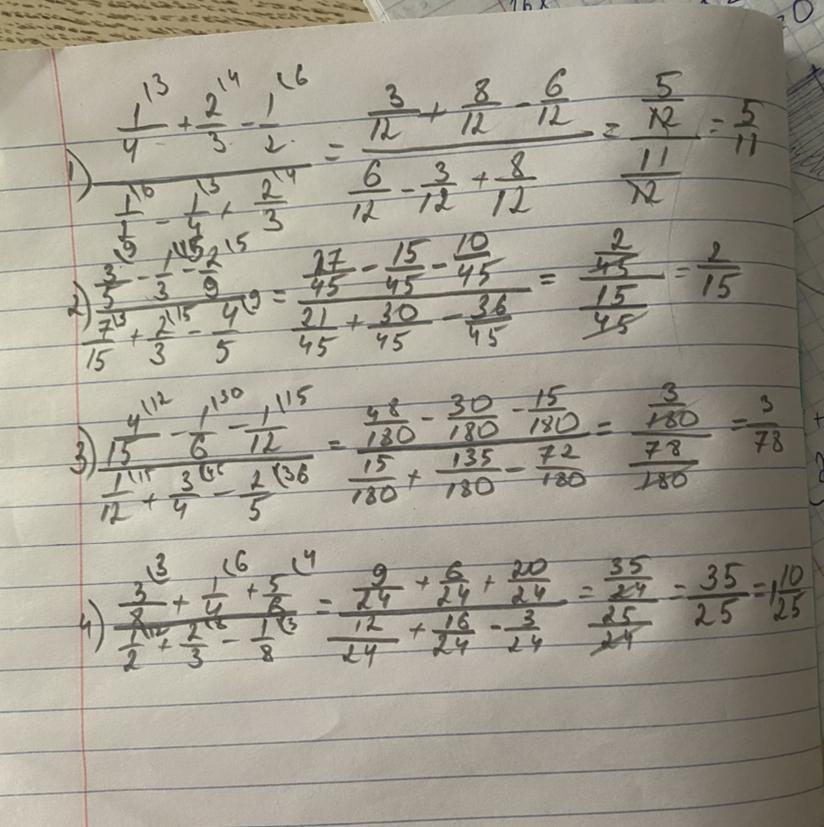 16x
0
1) (1/4⁽³ + 2/3⁽⁴ - 1/2⁽⁶) / (1/2⁽⁶ - 1/4⁽³ + 2/3⁽⁴) = (3/12 + 8/12 - 6/12) / (6/12 - 3/12 + 8/12) = (5/12) / (11/12) = 5/11
2) (3/5⁽⁹ - 1/3⁽¹⁵ - 2/9⁽⁵) / (7/15⁽³ + 2/3⁽¹⁵ - 4/5⁽⁹) = (27/45 - 15/45 - 10/45) / (21/45 + 30/45 - 36/45) = (2/45) / (15/45) = 2/15
3) (4/15⁽¹² - 1/6⁽³⁰ - 1/12⁽¹⁵) / (1/12⁽¹⁵ + 3/4⁽⁴⁵ - 2/5⁽³⁶) = (48/180 - 30/180 - 15/180) / (15/180 + 135/180 - 72/180) = (3/180) / (78/180) = 3/78
4) (3/8⁽³ + 1/4⁽⁶ + 5/6⁽⁴) / (1/2⁽¹² + 2/3⁽⁸ - 1/8⁽³) = (9/24 + 6/24 + 20/24) / (12/24 + 16/24 - 3/24) = (35/24) / (25/24) = 35/25 = 1 10/25